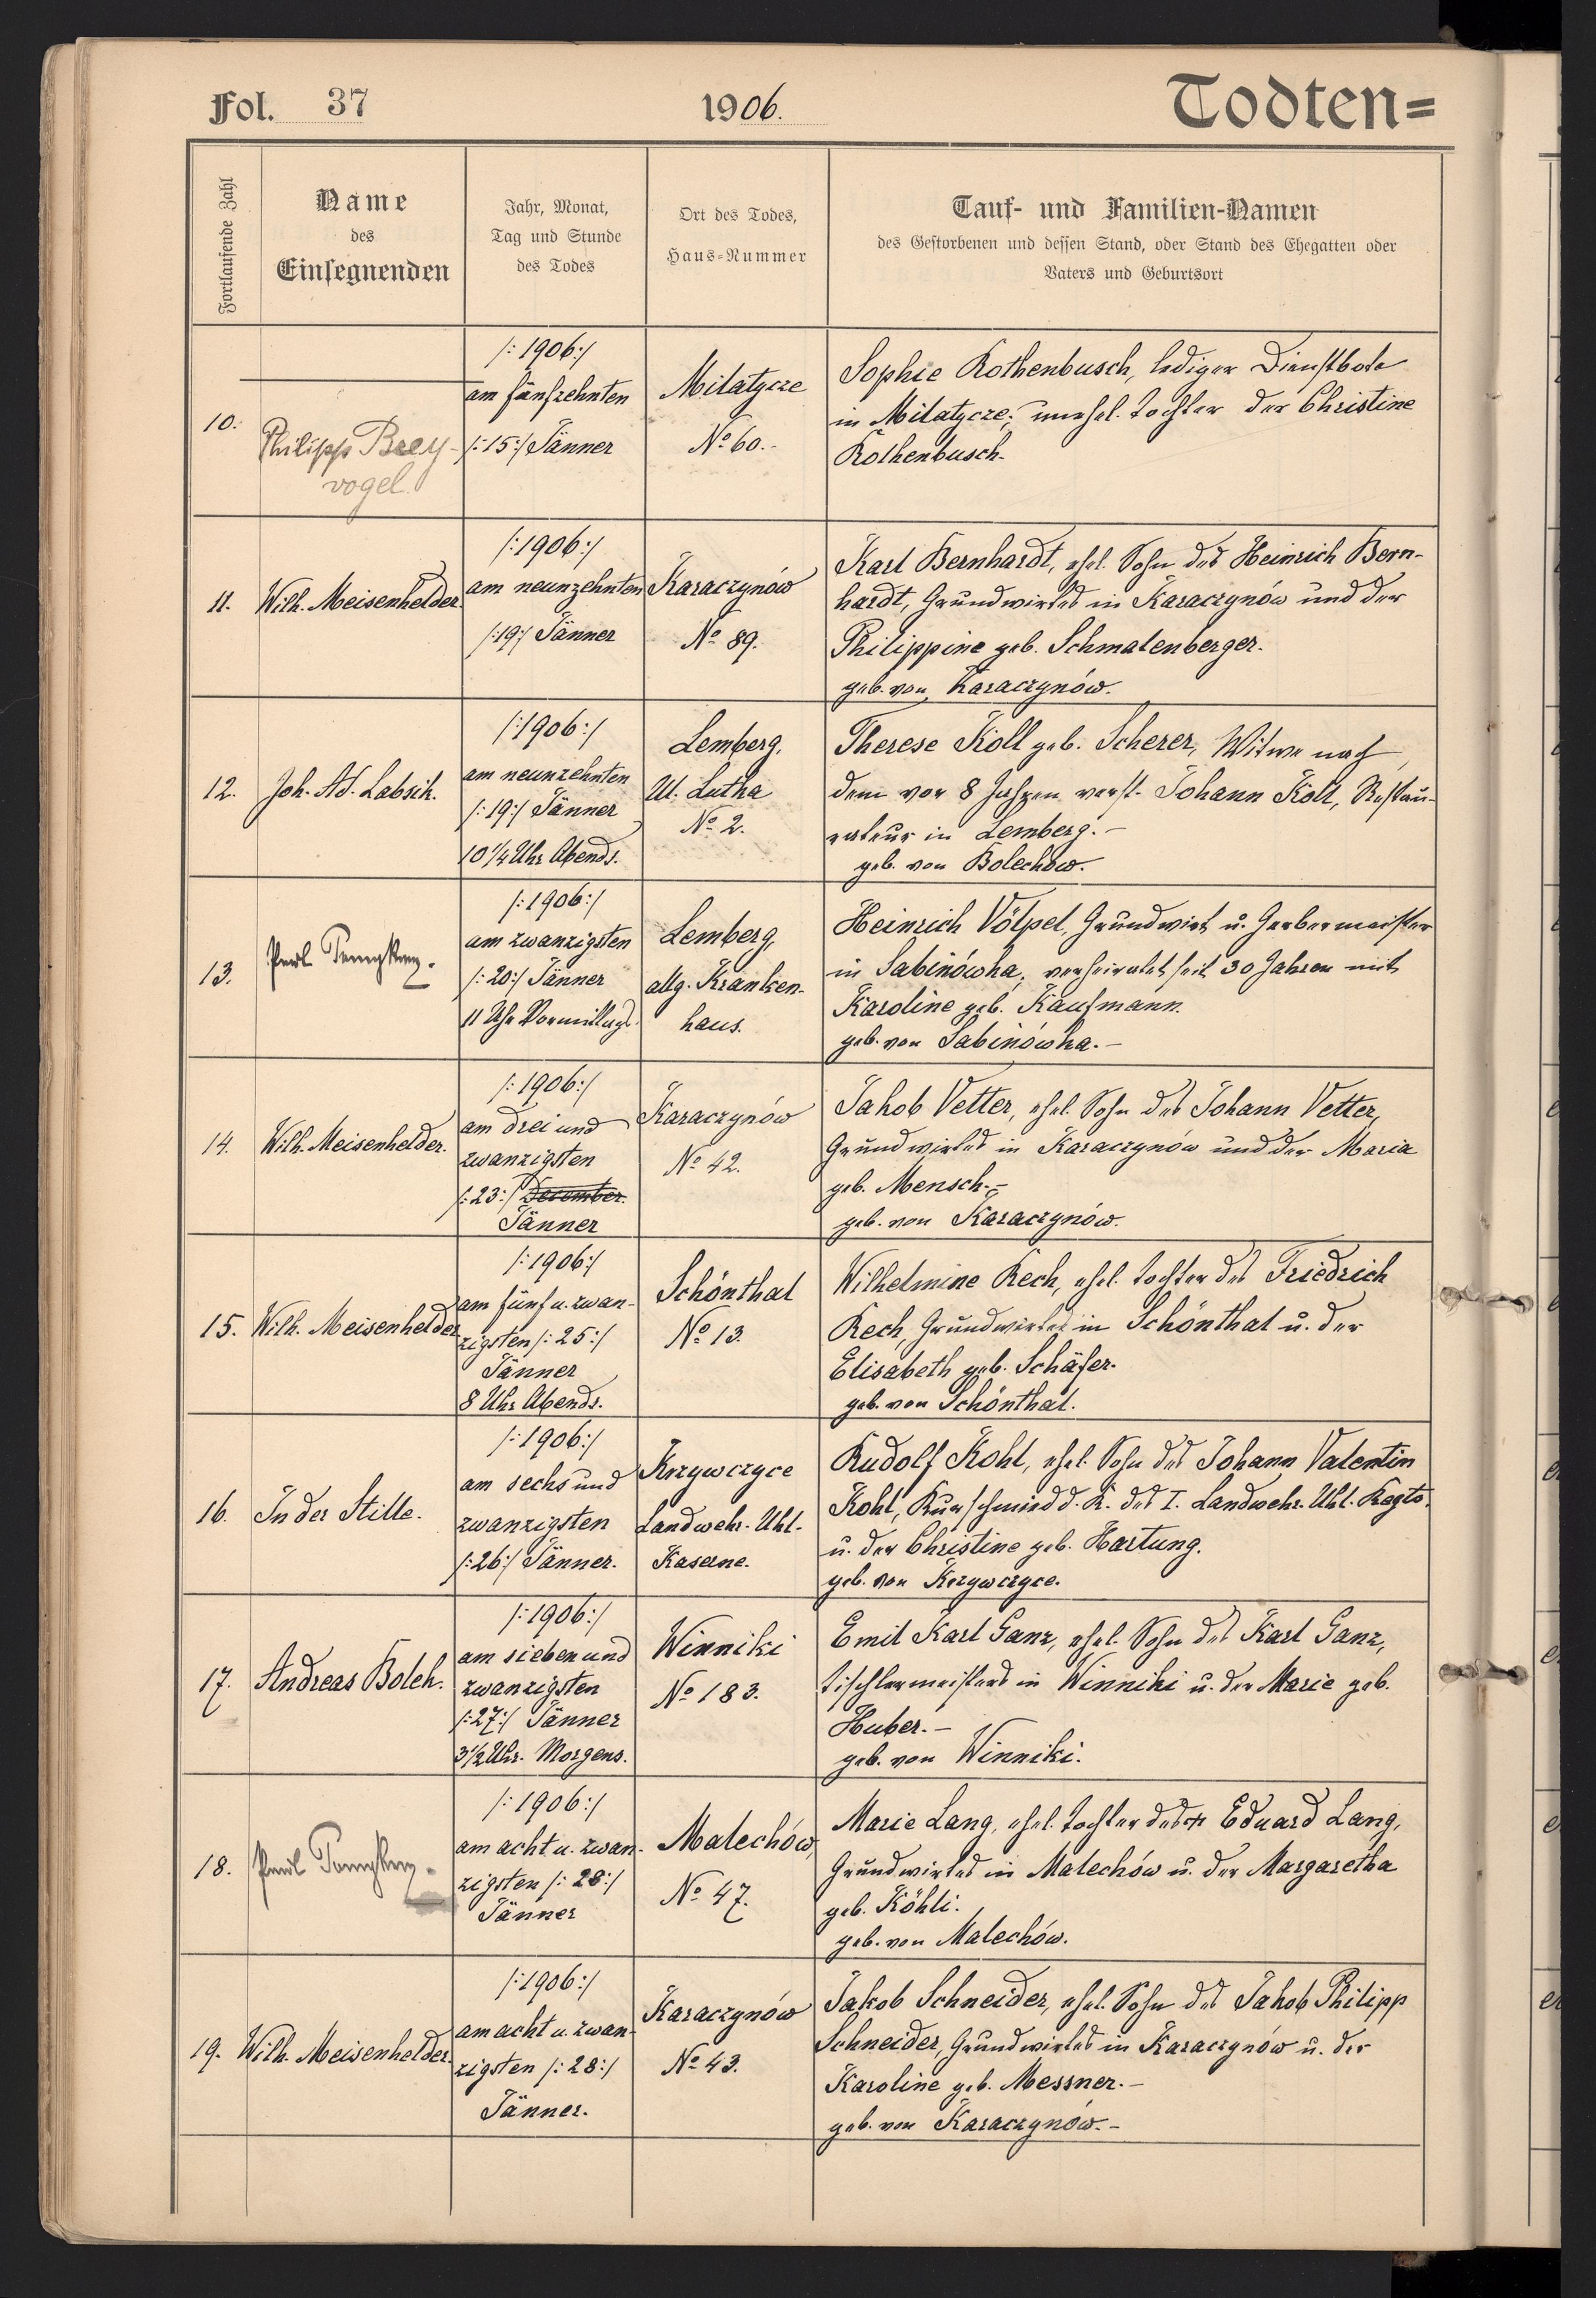 Fol. 37
1906.
Todten=
Fortlaufende Zahl
Name
des
Einsegnenden
Jahr, Monat,
Tag und Stunde
des Todes
Ort des Todes,
Haus-Nummer
Tauf- und Familien-Namen
des Gestorbenen und dessen Stand, oder Stand des Ehegatten oder
Vaters und Geburtsort
10.
Philipp Brey-
vogel.
/:1906:/
am fünfzehnten
/:15:/ Jänner
Milatycze
No 60.-
Sophie Rothenbusch, lediger Dienstbote
in Milatycze; unehel. Tochter der Christine
Rothenbusch.
11.
Wilh. Meisenhelder.
/:1906:/
am neunzehnten
/:19:/ Jänner
Karaczynów
No 89.
Karl Bernhardt, ehel. Sohn des Heinrich Bern-
hardt, Grundwirtes in Karaczynów und der
Philippine geb. Schmalenberger.
geb. von Karaczynów.
12.
Joh. Ad. Labsik.
/:1906:/
am neunzehnten
/:19:/ Jänner
10 1/4 Uhr Abends.
Lemberg,
Ul.
No 2.
Therese Koll geb. Scherer, Witwe nach
dem vor 8 Jahren verst. Johann Koll, Restau-
rateur in Lemberg.-
geb. von Bolechow.
13.
/:1906:/
am zwanzigsten
/:20:/ Jänner
11 Uhr Vormittags.
Lemberg,
allg. Kranken-
haus.
Heinrich Völpel, Grundwirt u. Gerbermeister
in Sabinówka, verheiratet seit 30 Jahren mit
Karoline geb. Kaufmann.
geb. von Sabinówka.-
14.
Wilh. Meisenhelder.
/:1906:/
am drei und
zwanzigsten
/:23:/ December.
Jänner
Karaczynów
No 42.
Jakob Vetter, ehel. Sohn des Johann Vetter,
Grundwirtes in Karaczynów und der Maria
geb. Mensch.-
geb. von Karaczynów.
15.
Wilh. Meisenhelder
/:1906:/
am fünf u. zwan-
zigsten /:25:/
Jänner
8 Uhr Abends.
Schönthal
No 13.
Wilhelmine Rech, ehel. Tochter des Friedrich
Rech, Grundwirtes in Schönthal u. der
Elisabeth geb. Schäfer.
geb. von Schönthal.
16.
In der Stille.
/:1906:/
am sechs und
zwanzigsten
/:26:/ Jänner.
Krzywczyce
Landwehr-Uhl-
Kaserne.
Rudolf Kohl, ehel. Sohn des Johann Valentin
Kohl, Kurschmied d. R. des I. Landwehr. Uhl. Regts.
u. der Christine geb. Hartung.
geb. von Krzywczyce.
17.
Andreas Bolek.
/:1906:/
am sieben und
zwanzigsten
/:27:/ Jänner
3 1/2 Uhr. Morgens.
Winniki
No 183.
Emil Karl Ganz, ehel. Sohn des Karl Ganz,
Tischlermeisters in Winniki u. der Marie geb.
Huber.-
geb. von Winniki.
18.
/:1906:/
am acht u. zwan-
zigsten /:28:/
Jänner
Malechów,
No 47.
Marie Lang, ehel. Tochter des Eduard Lang,
Grundwirtes in Malechów u. der Margaretha
geb. Köhli.
geb. von Malechów.
19.
Wilh. Meisenhelder.
/:1906:/
am acht u. zwan-
zigsten /:28:/
Jänner.
Karaczynów
No 43.
Jakob Schneider, ehel. Sohn des Jakob Philipp
Schneider, Grundwirtes in Karaczynów u. der
Karoline geb. Messner.-
geb. von Karaczynów.-